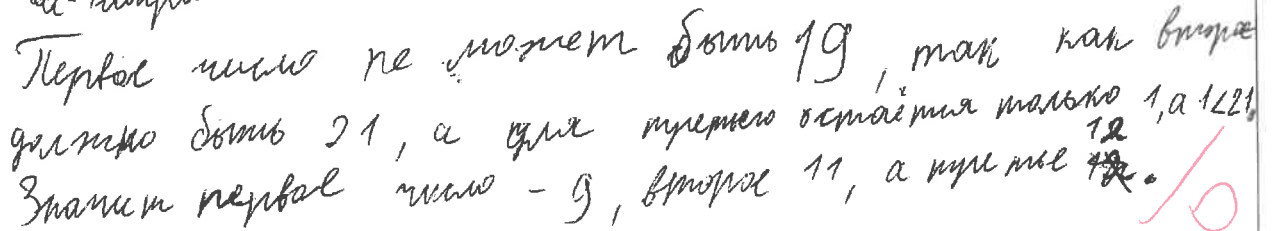 Первое число не может быть 19, так как второе
должно быть 21, а для третьего остаётся только 1, а 1<21.
Значит первое число - 9, второе 11, а третье 12.